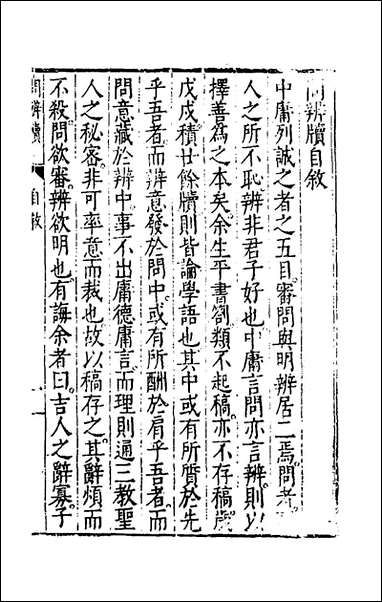 問辨牘自敘
中庸列誠之者之五目審問與明辨居二焉問者
人之所不恥辨非君子好也中庸言問亦言辨則以
擇善為之本矣余生平書劄類不起稿亦不存稿歲
戊戌積廿餘牘則皆論學語也其中或有所質於先
乎吾者而辨意發於問中或有所酬於肩乎吾者而
問意藏於辨中事不出庸德庸言而理則通三教聖
人之秘密非可率意而裁也故以稿存之其辭煩而
不殺問欲審辨欲明也有誨余者曰吉人之辭寡子
問辨牘
自敘
一